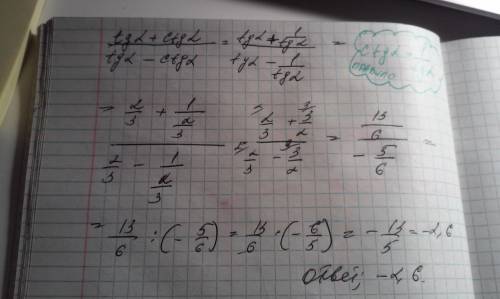 (tgα + ctgα)/(tgα − ctgα) = (tgα + 1/tgα)/(tgα − 1/tgα) =
ctgα =
= (2/3 + 1/(2/3))/(2/3 − 1/(2/3)) = (2/3 + 3/2)/(2/3 − 3/2) = (13/6)/(−5/6) =
= 13/6 : (−5/6) = 13/6 · (−6/5) = −13/5 = −2,6
Ответ: −2,6.